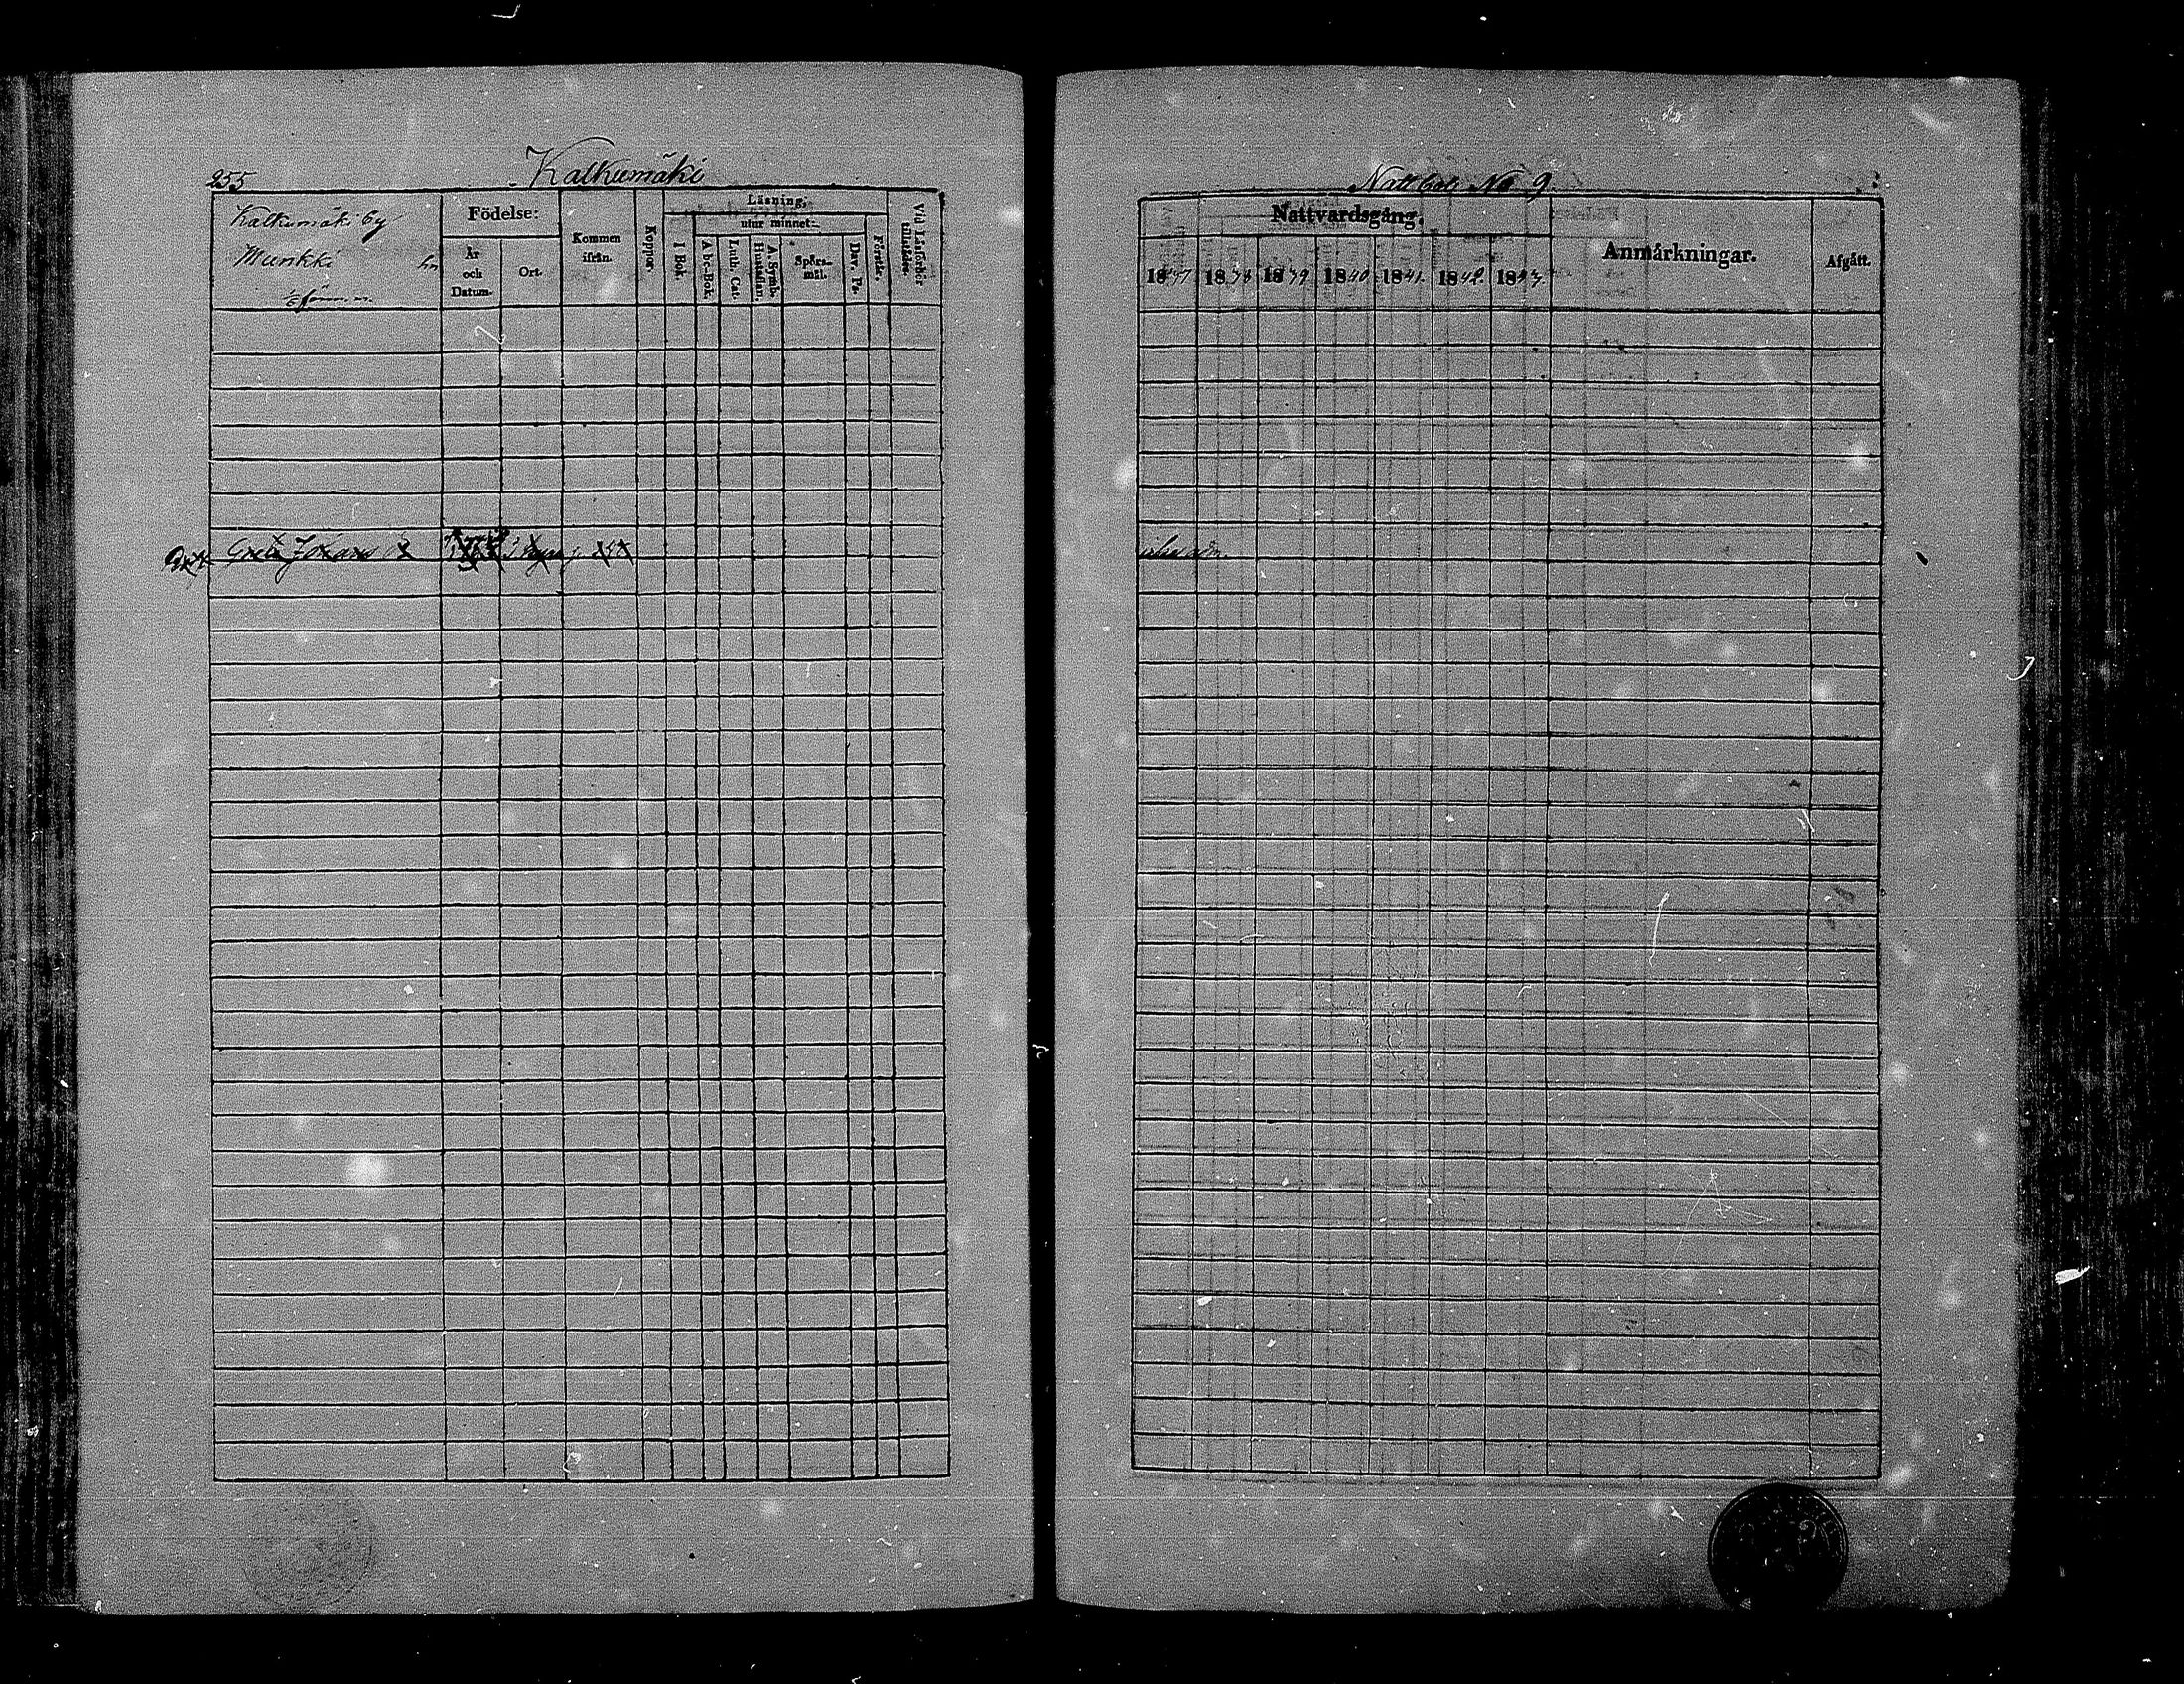 255
Kalkumäki
Kalkumäki by
Munkki hn
Födelse:
År
och
Datum.
Ort.
Kommen
ifrån.
Koppor.
Läsning,
utur minnet:
I Bok.
Abc-Bok.
Luth. Cat.
A. Symb.
Hustaflan.
Spörs-
mål.
Dav. Ps.
Förstår.
Vid Läsförhör
tillstädes.
Greta Johans
Nattb No 9
Nattvardsgång.
1837 1838 1839 1840 1841. 1842. 1843.
Anmärkningar.
Afgått.